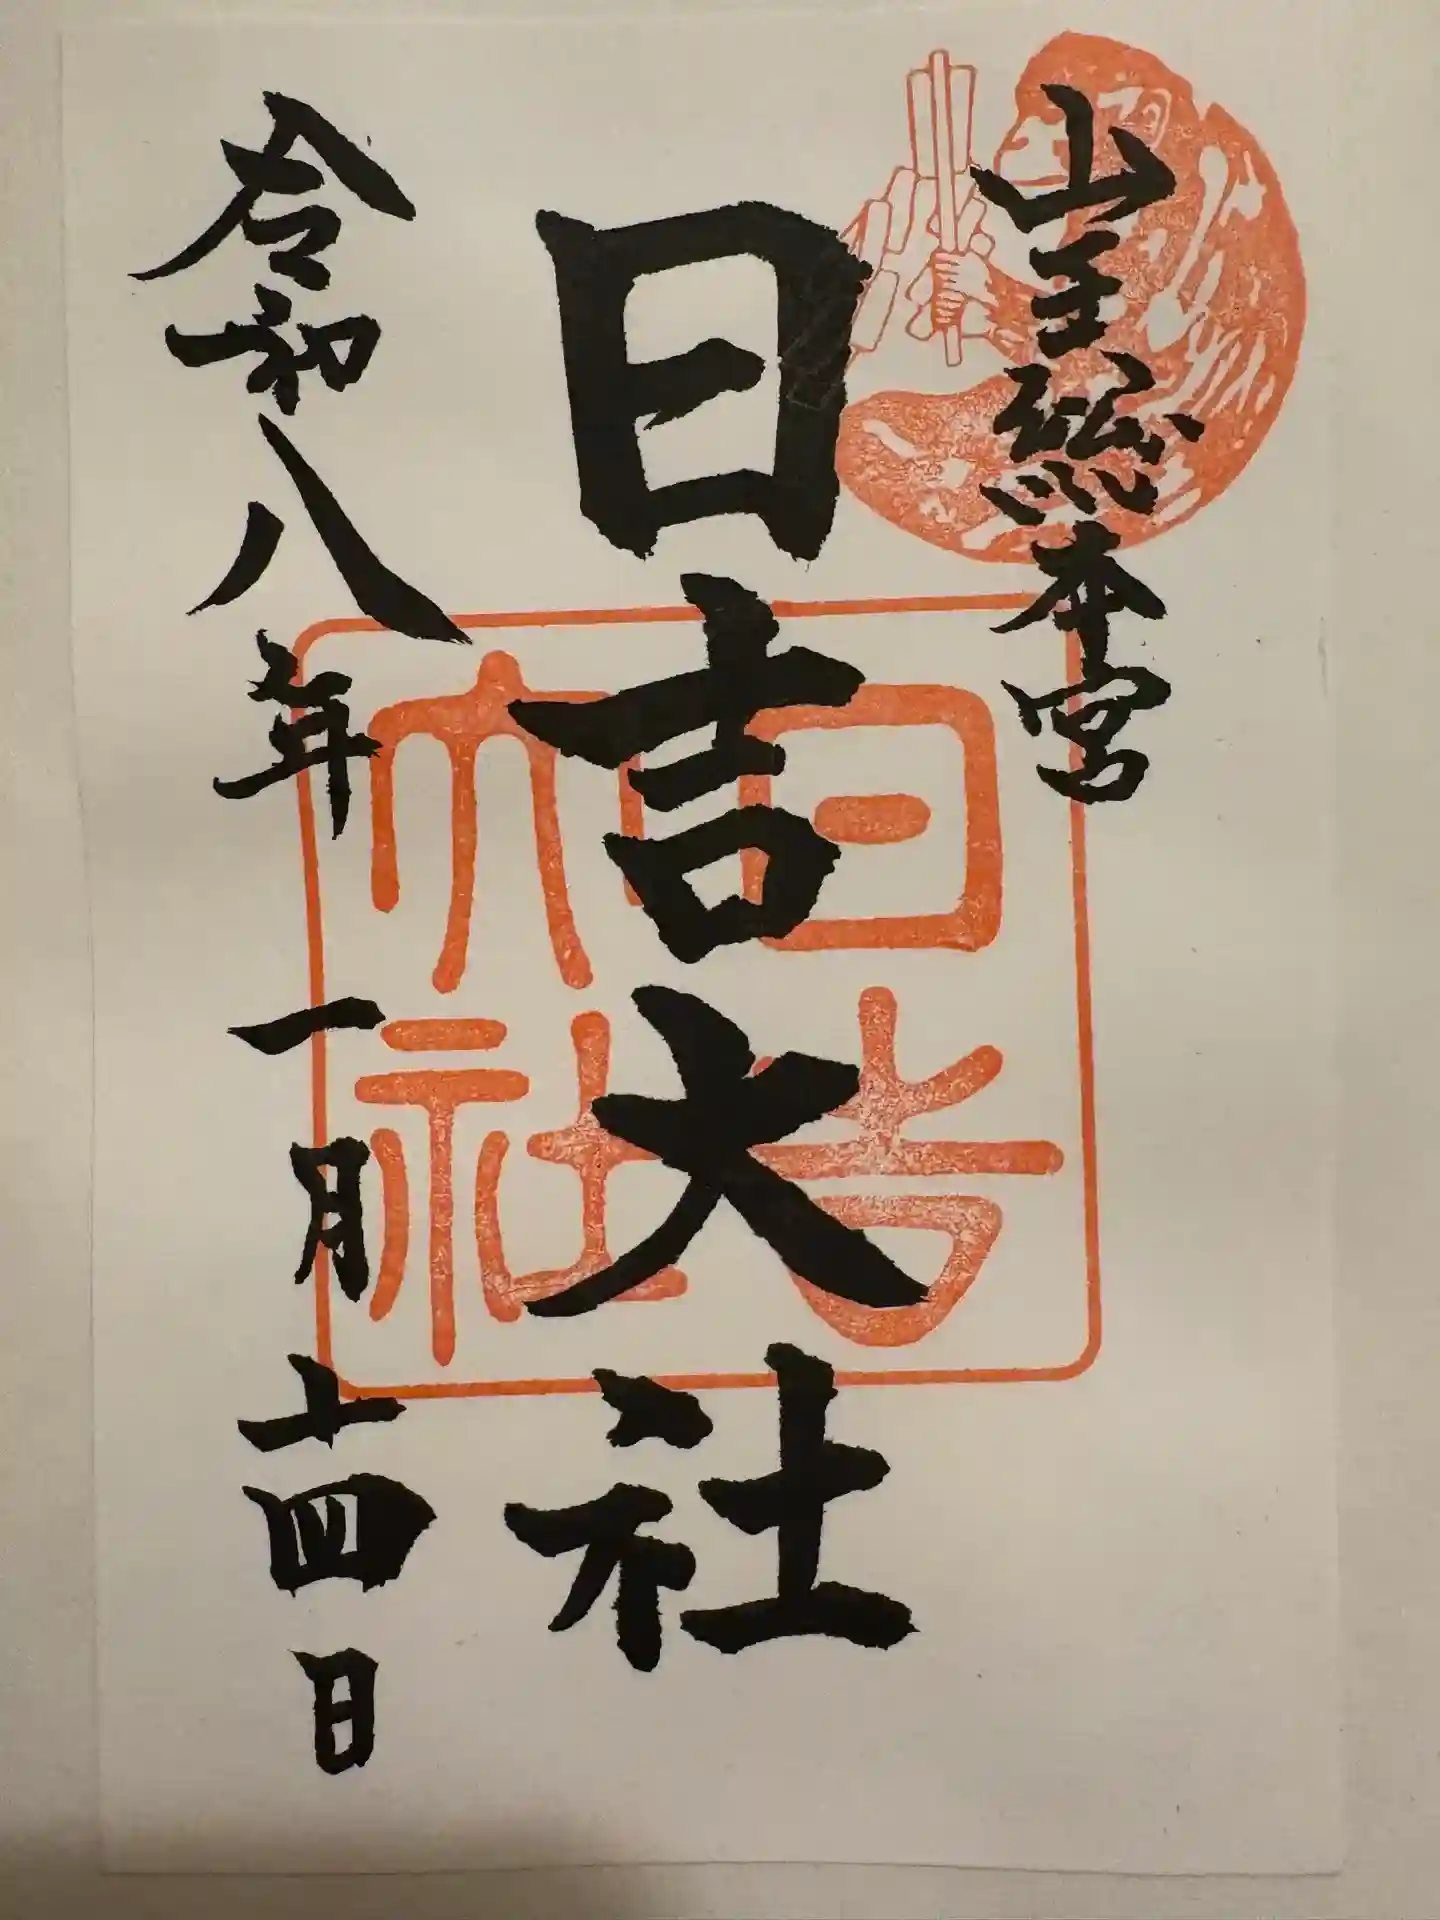 山王総本宮
日吉大社
令和八年一月十四日
日吉
大社